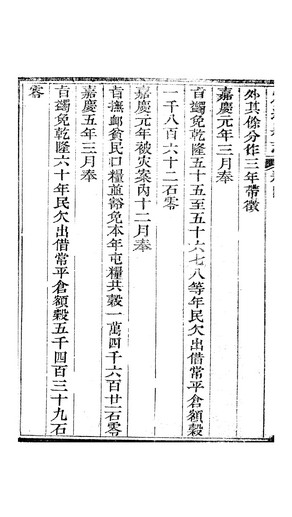 外其餘分作三年帶徵
嘉慶元年三月奉
旨蠲免乾隆五十五至五十六七八等年民欠出借常平倉額穀
一千八百六十二石零
嘉慶元年被灾案內十二月奉
旨撫䘏貧民口糧並豁免本年屯糧共穀一萬四千六百廿一石零
嘉慶五年三月奉
旨蠲免乾隆六十年民欠出借常平倉額穀五千四百三十九石
零